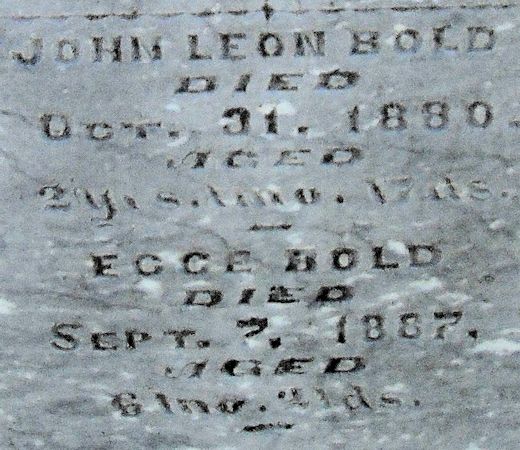 JOHN LEON BOLD
DIED
OCT. 31. 1880.
AGED
2 yrs. 1 mo. 17 ds.
EGGE BOLD
DIED
SEPT. 7, 1887.
AGED
mo. ds.